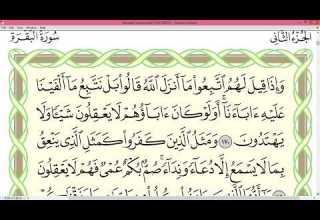 الجزء الثاني
سورة البقرة
وَإِذَا قِيلَ لَهُمُ ٱتَّبِعُوا۟ مَآ أَنزَلَ ٱللَّهُ قَالُوا۟ بَلْ نَتَّبِعُ مَآ أَلْفَيْنَا
عَلَيْهِ ءَابَآءَنَآ أَوَلَوْ كَانَ ءَابَآؤُهُمْ لَا يَعْقِلُونَ شَيْـًٔا وَلَا
يَهْتَدُونَ ١٧٠ وَمَثَلُ ٱلَّذِينَ كَفَرُوا۟ كَمَثَلِ ٱلَّذِى يَنْعِقُ
بِمَا لَا يَسْمَعُ إِلَّا دُعَآءً وَنِدَآءً صُمٌّۢ بُكْمٌ عُمْىٌ فَهُمْ لَا يَعْقِلُونَ